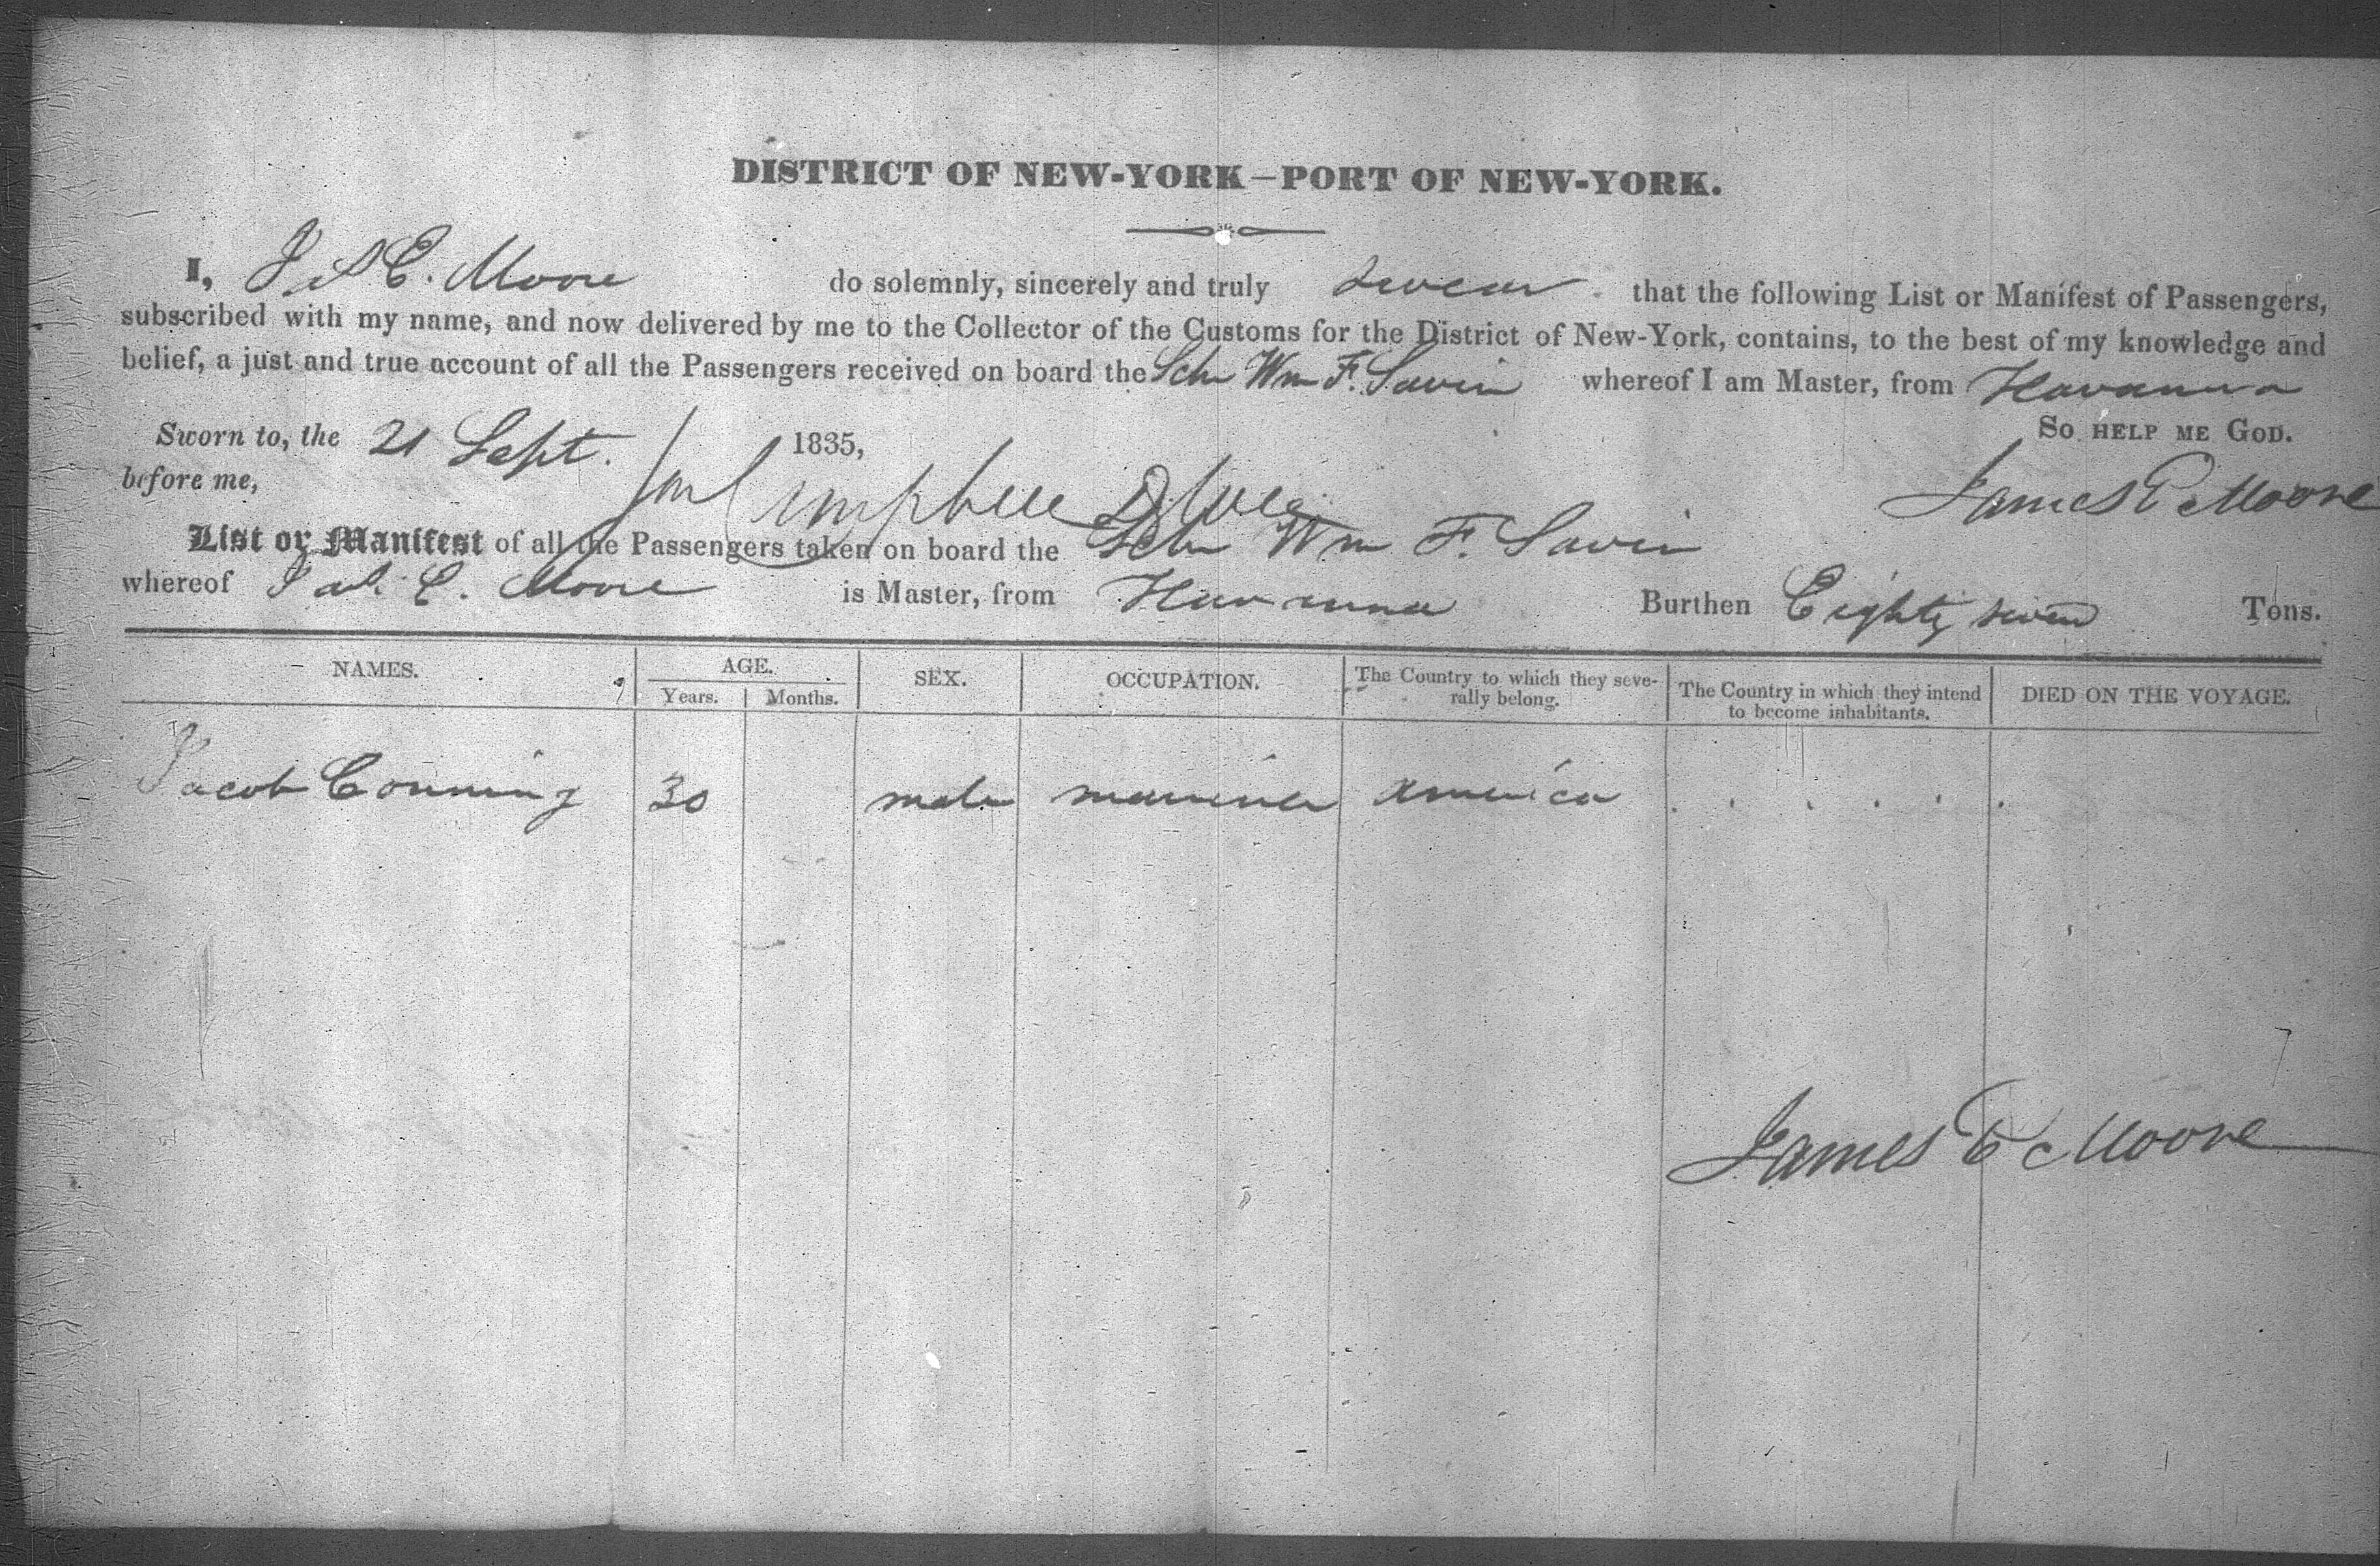 DISTRICT OF NEW-YORK—PORT OF NEW-YORK.
I, Jas C. Moore do solemnly, sincerely and truly swear that the following List or Manifest of Passengers,
subscribed with my name, and now delivered by me to the Collector of the Customs for the District of New-York, contains, to the best of my knowledge and
belief, a just and true account of all the Passengers received on board the Schr Wm F. Savin whereof I am Master, from Havanna
So HELP ME GOD.
Sworn to, the 21 Sept. 1835,
before me, Campbell James C Moore
List or Manifest of all the Passengers taken on board the Schr Wm F. Savin
whereof Jas. C. Moore is Master, from Havanna Burthen Eighty seven Tons.
NAMES. AGE. SEX. OCCUPATION. The Country to which they severally belong. The Country in which they intend to become inhabitants. DIED ON THE VOYAGE.
Years. Months.
Jacob Conning 30 male mariner america
James C Moore